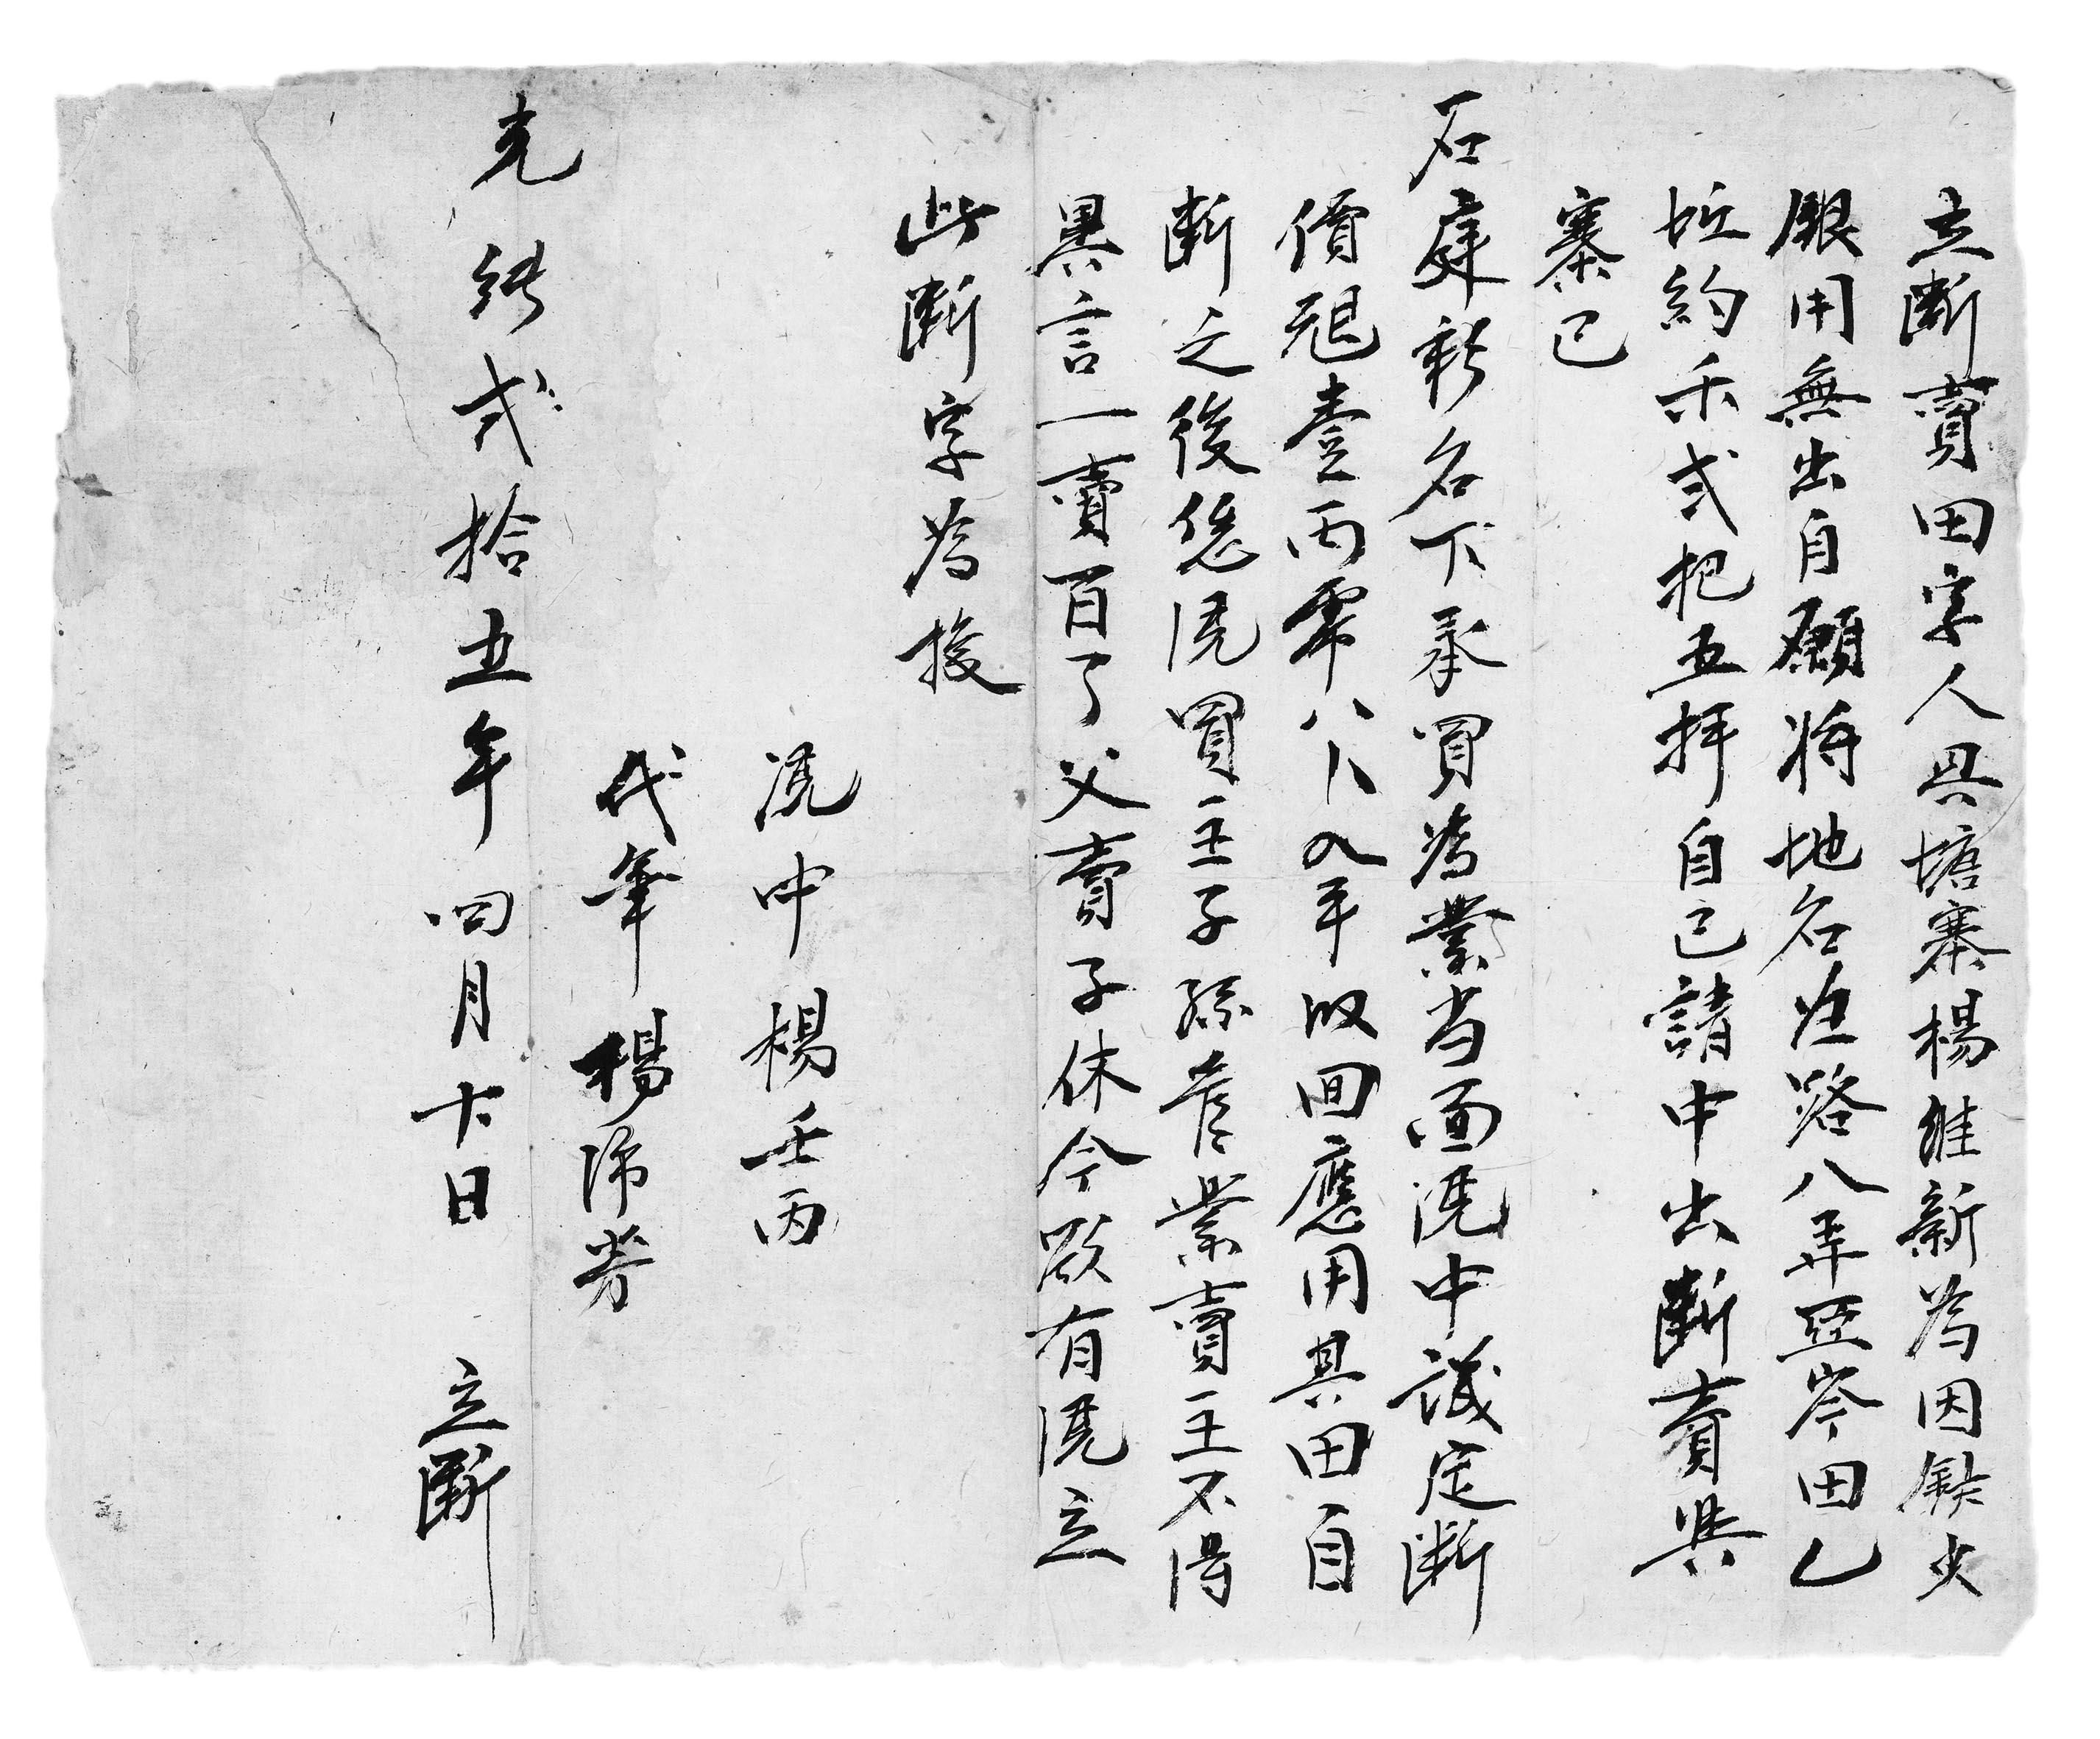 立断賣田字人具塘寨楊維新為因缺少
銀用無出自願將地名從路八弄亞岑田乙
坵約禾弍把五拜自己請中出断賣與
寨已
石庭彩名下承買為業当面凴中議定断
價艮壹両零八卜入手收回應用其田自
断之後恁凴買主子孫管業賣主不得
異言一賣百了父賣子休今欲有凴立
此断字為據
凴中 楊壬丙
代筆 楊沛芳
光緒弍拾五年四月十日 立断